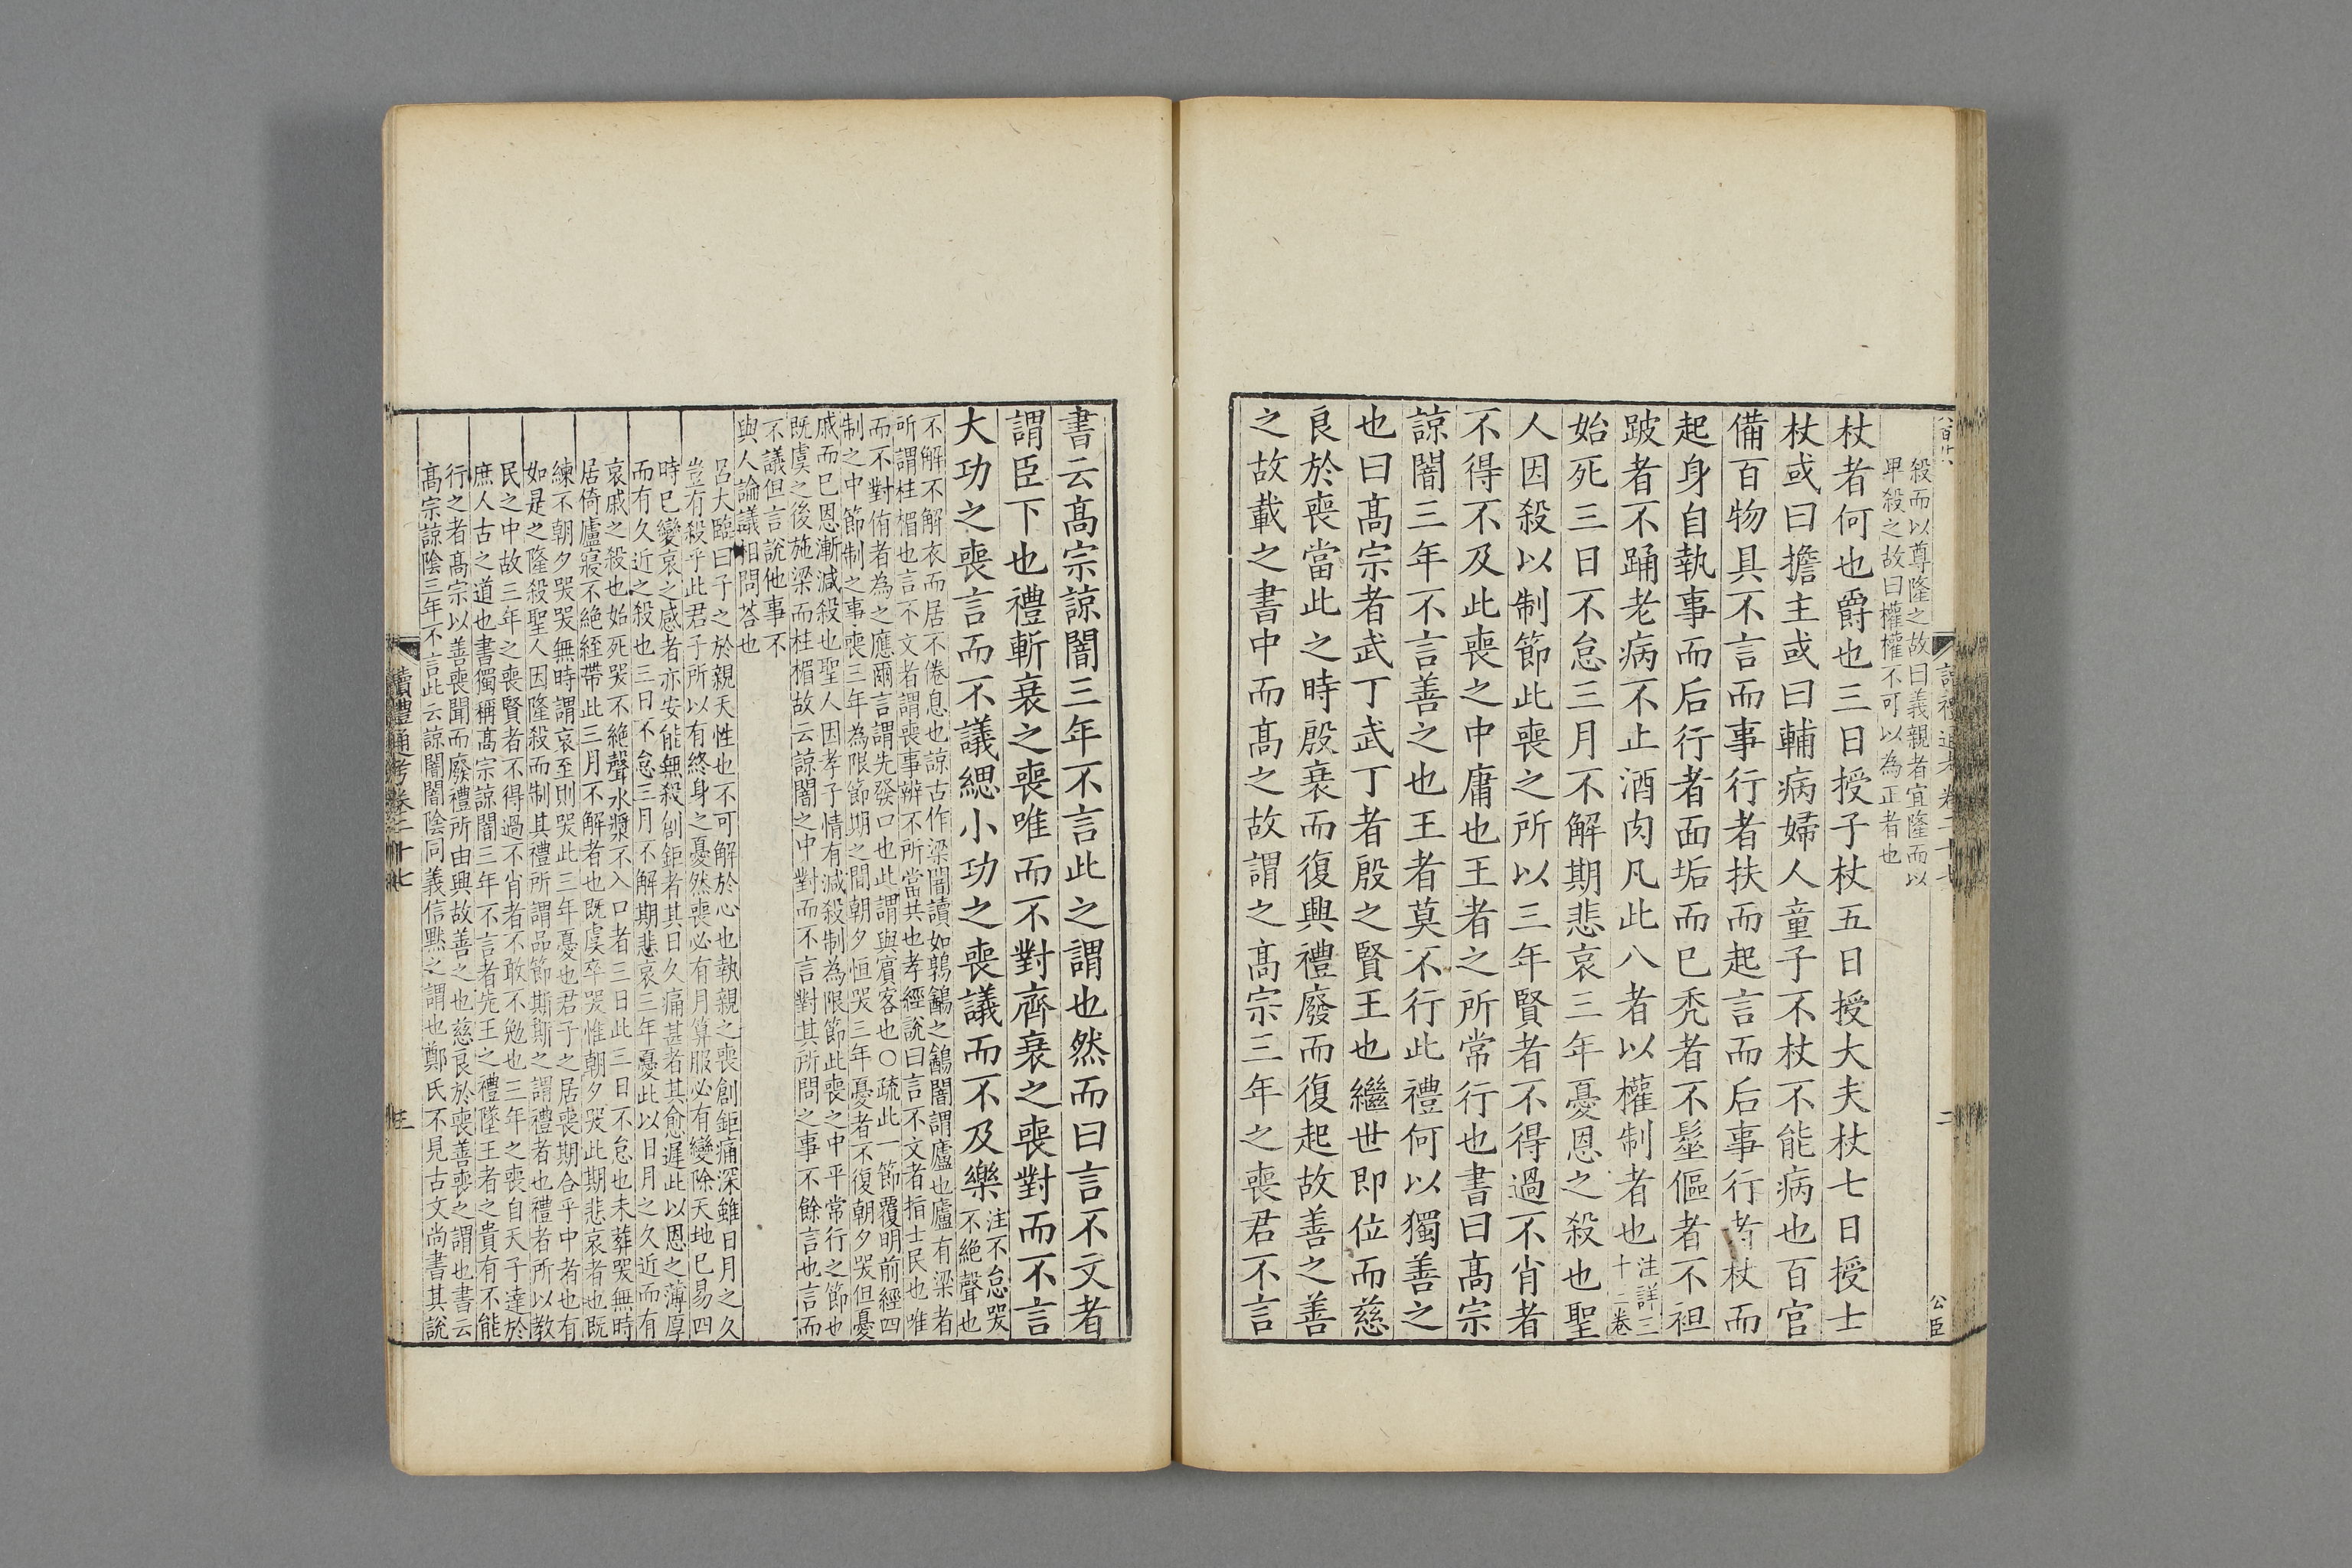 殺而以尊隆之故曰義親者宜隆而以
卑殺之故曰權權不可以為正者也
杖者何也爵也三日授子杖五日授大夫杖七日授士
杖或曰擔主或曰輔病婦人童子不杖不能病也百官
備百物具不言而事行者扶而起言而后事行者杖而
起身自執事而后行者面垢而已秃者不髽傴者不袒
跛者不踊老病不止酒肉凡此八者以權制者也注詳三
十二卷
始死三日不怠三月不解期悲哀三年憂恩之殺也聖
人因殺以制節此喪之所以三年賢者不得過不肖者
不得不及此喪之中庸也王者之所常行也書曰髙宗
諒闇三年不言善之也王者莫不行此禮何以獨善之
也曰髙宗者武丁武丁者殷之賢王也繼世即位而慈
良於喪當此之時殷衰而復興禮廢而復起故善之善
之故載之書中而髙之故謂之髙宗三年之喪君不言
二
公臣
書云髙宗諒闇三年不言此之謂也然而曰言不文者
謂臣下也禮斬衰之喪唯而不對齊衰之喪對而不言
大功之喪言而不議緦小功之喪議而不及樂注不怠哭
不絕聲也
不解不解衣而居不倦息也諒古作梁闇讀如鶉鷂之鷂闇謂廬也廬有梁者
所謂柱楣也言不文者謂喪事辨不所當共也孝經說曰言不文者指士民也唯
而不對侑者為之應爾言謂先發口也此謂與賓客也○疏此一節覆明前經四
制之中節制之事喪三年為限節期之間朝夕恒哭三年憂者不復朝夕哭但憂
戚而已恩漸減殺也聖人因孝子情有減殺制為限節此喪之中平常行之節也
既虞之後施梁而柱楣故云諒闇之中對而不言對其所問之事不餘言也言而
不議但言說他事不
與人論議相問荅也
呂大臨曰子之於親天性也不可解於心也執親之喪創鉅痛深雖日月之久
豈有殺乎此君子所以有終身之憂然喪必有月算服必有變除天地已易四
時已變哀之感者亦安能無殺創鉅者其日久痛甚者其愈遲此以恩之薄厚
而有久近之殺也三日不怠三月不解期悲哀三年憂此以日月之久近而有
哀戚之殺也始死哭不絕聲水漿不入口者三日此三日不怠也未葬哭無時
居倚廬寢不絕絰帶此三月不解者也既虞卒哭惟朝夕哭此期悲哀者也既
練不朝夕哭哭無時謂哀至則哭此三年憂也君子之居喪期合乎中者也有
如是之隆殺聖人因隆殺而制其禮所謂品節斯斯之謂禮者也禮者所以教
民之中故三年之喪賢者不得過不肖者不敢不勉也三年之喪自天子達於
庶人古之道也書獨稱髙宗諒闇三年不言者先王之禮墜王者之貴有不能
行之者髙宗以善喪聞而廢禮所由興故善之也慈良於喪善喪之謂也書云
髙宗諒陰三年不言此云諒闇闇陰同義信黙之謂也鄭氏不見古文尚書其說
讀禮通考卷二十七
三